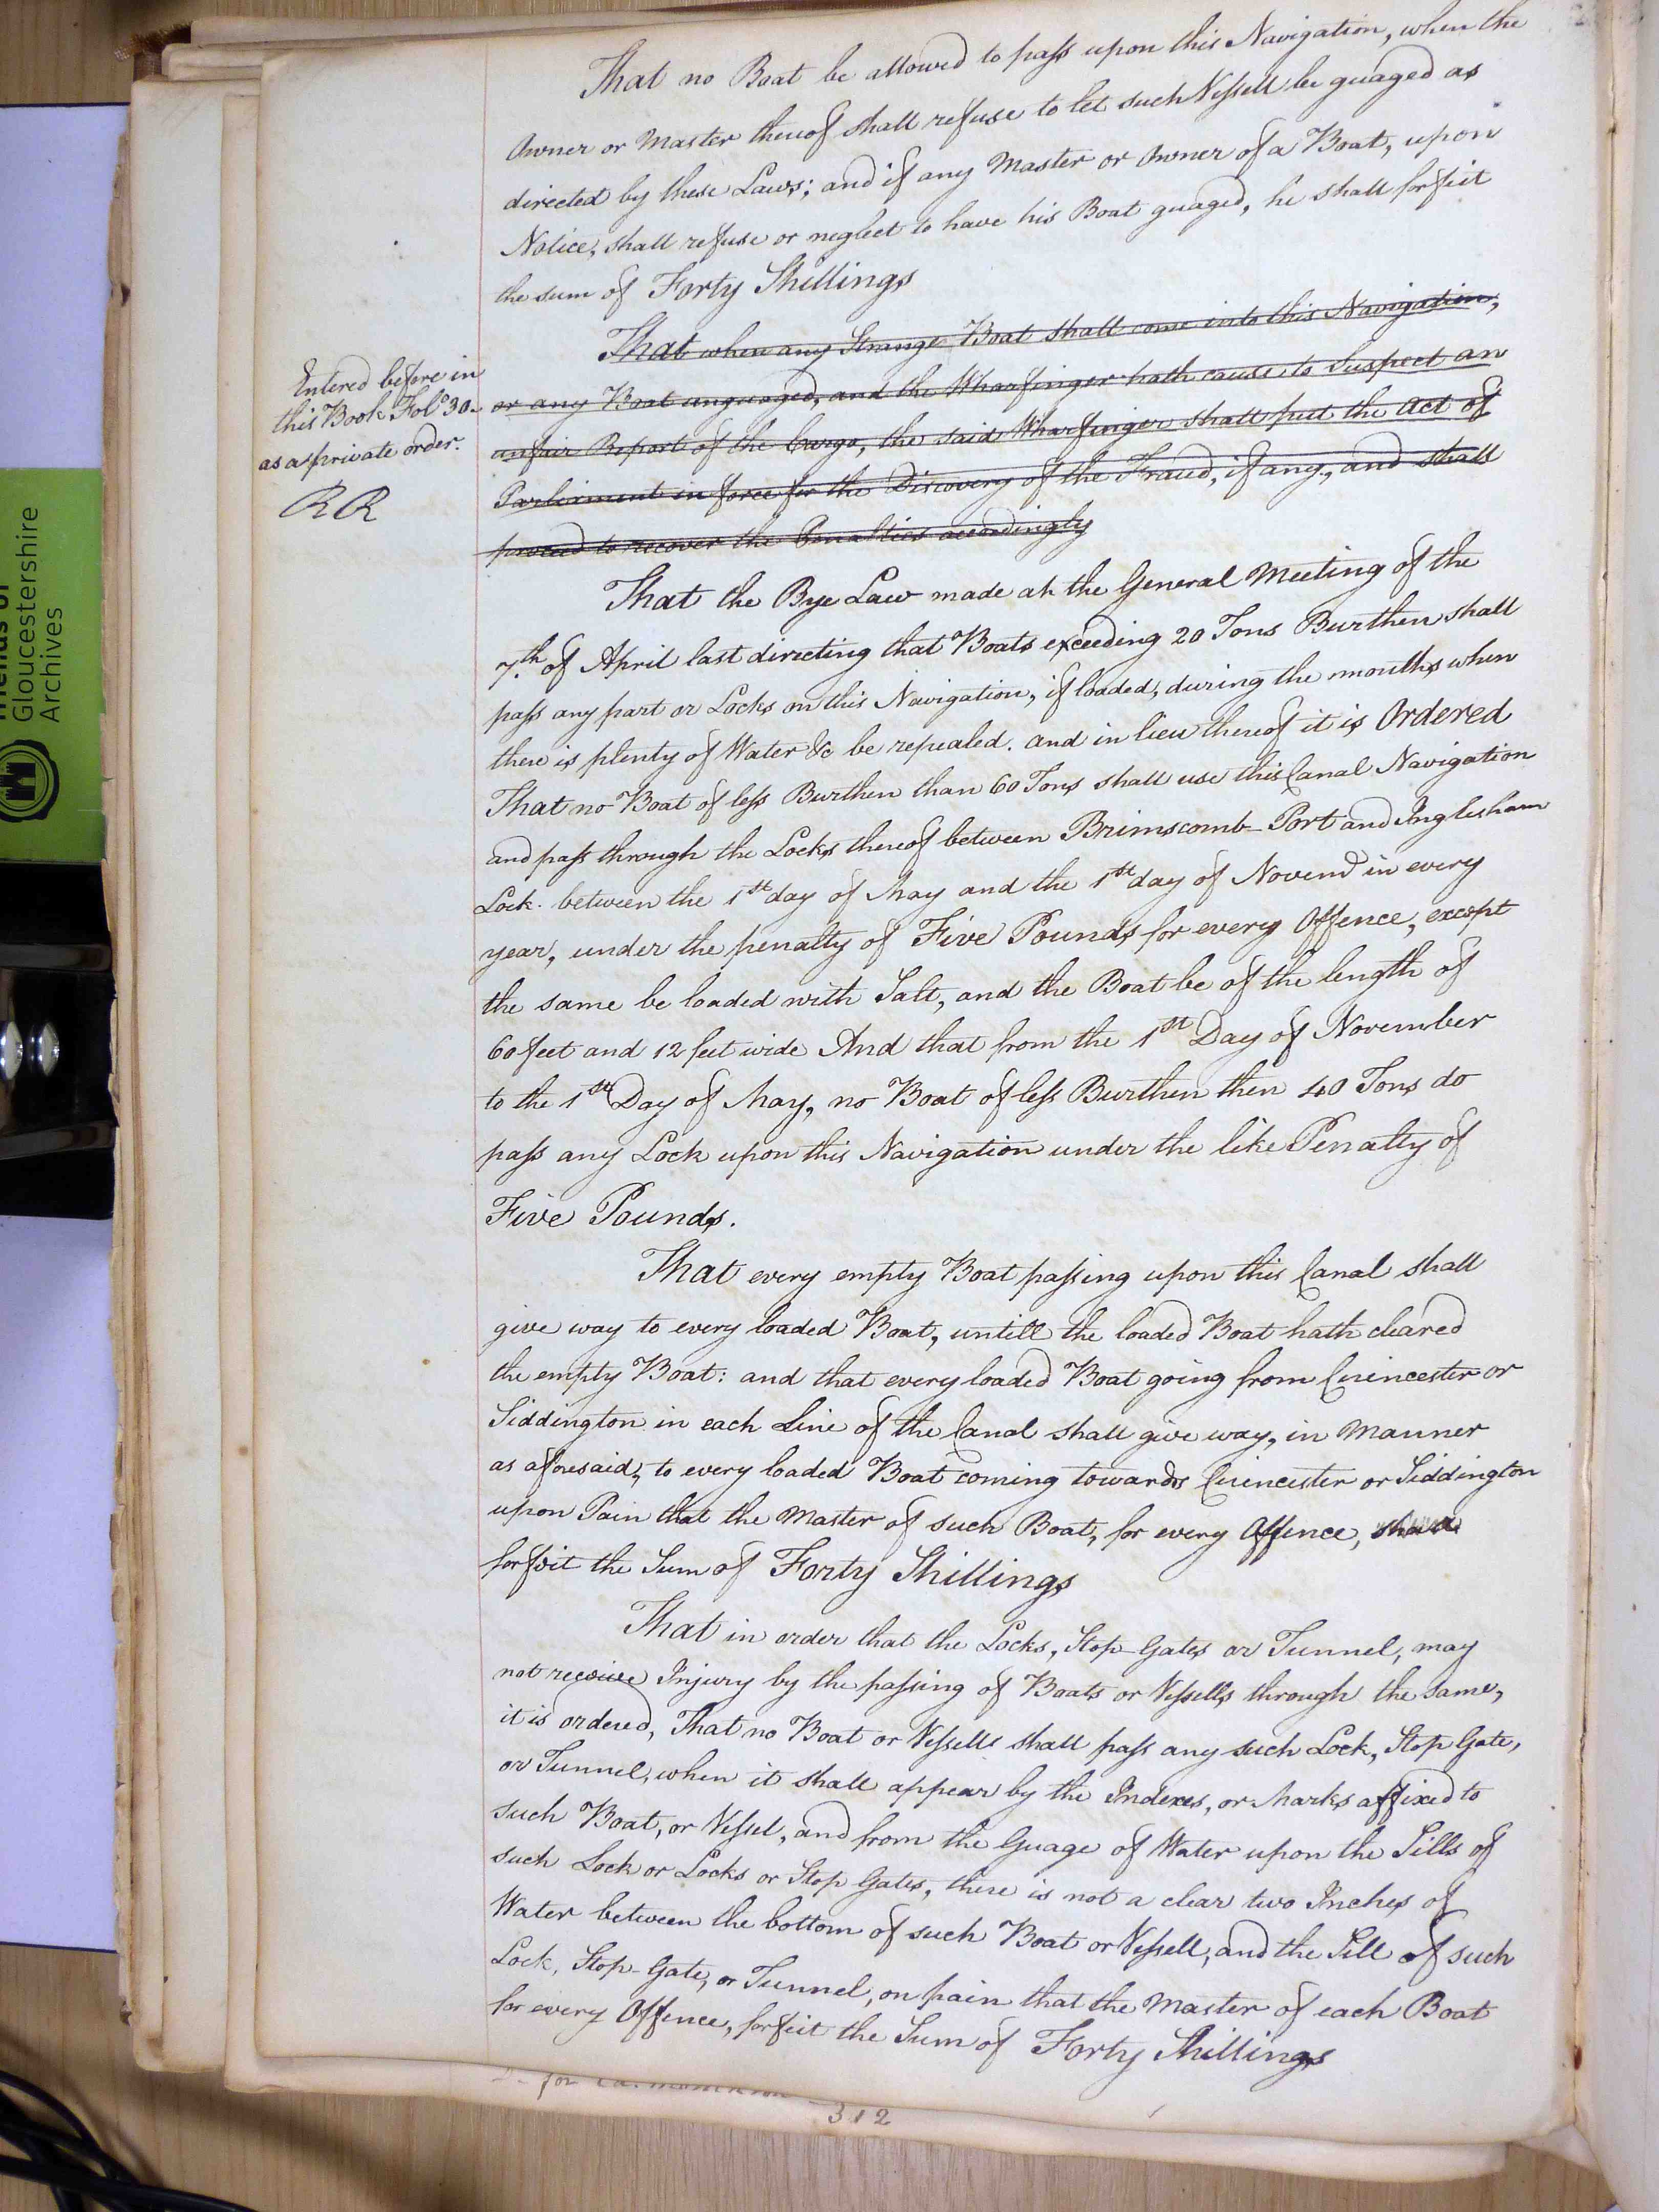 That no Boat be allowed to pass upon this Navigation, when the
Owner or Master thereof shall refuse to let such Vessell be guaged as
directed by these Laws; and if any Master or Owner of a Boat, upon
Notice, shall refuse or neglect to have his Boat guaged, he shall forfeit
the sum of Forty Shillings
That when any Strange Boat shall come into this Navigation,
or any Boat unguaged, and the Wharfinger hath cause to Suspect an
unfair Report of the Cargo, the said Wharfinger shall put the Act of
Parliament in force for the Discovery of the Fraud, if any, and shall
proceed to recover the Penalties accordingly
Entered before in
this Book Folo 30.
as a private order.
RR
That the Bye Law made at the General Meeting of the
7th of April last directing that Boats exceeding 20 Tons Burthen shall
pass any part or Locks on this Navigation, if loaded, during the months when
there is plenty of Water &c be repealed. and in lieu thereof it is Ordered
That no Boat of less Burthen than 60 Tons shall use this Canal Navigation
and pass through the Locks thereof between Brimscomb Port and Inglesham
Lock between the 1st day of May and the 1st day of Novemr in every
year, under the penalty of Five Pounds for every Offence, except
the same be loaded with Salt, and the Boat be of the length of
60 feet and 12 feet wide And that from the 1st Day of November
to the 1st Day of May, no Boat of less Burthen then 40 Tons do
pass any Lock upon this Navigation under the like Penalty of
Five Pounds.
That every empty Boat passing upon this Canal shall
give way to every loaded Boat, untill the loaded Boat hath cleared
the empty Boat: and that every loaded Boat going from Cirencester or
Siddington in each Line of the Canal shall give way, in Manner
as aforesaid, to every loaded Boat coming towards Cirencester or Siddington
upon Pain that the Master of such Boat, for every Offence, shall
forfeit the Sum of Forty Shillings
That in order that the Locks, Stop-Gates or Tunnel, may
not receive Injury by the passing of Boats or Vessells through the same,
it is ordered, That no Boat or Vessells shall pass any such Lock, Stop Gate,
or Tunnel, when it shall appear by the Indexes, or Marks affixed to
such Boat, or Vessel, and from the Guage of Water upon the Sills of
such Lock or Locks or Stop Gates, there is not a clear two Inches of
Water between the bottom of such Boat or Vessell, and the Sill of such
Lock, Stop-Gate, or Tunnel, on pain that the Master of each Boat
for every Offence, forfeit the Sum of Forty Shillings
312
Gloucestershire
Archives